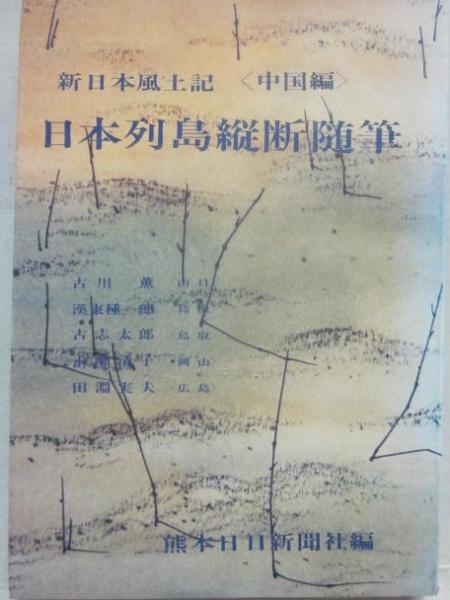 新日本風土記 〈中国編〉
日本列島縦断随筆
古川 薫 山口
漢東種一郎 島根
古志太郎 鳥取
子 岡山
田淵実夫 広島
熊本日日新聞社編